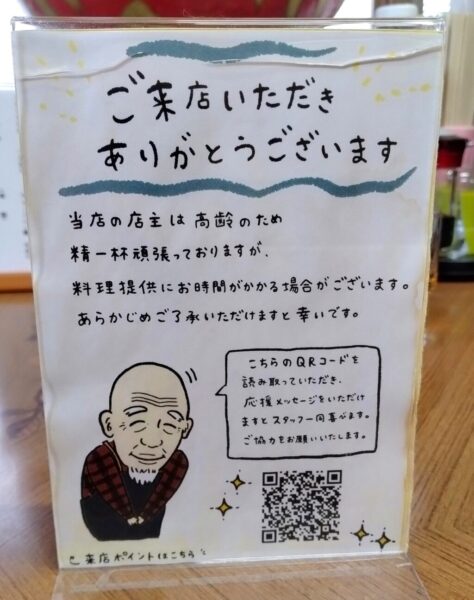 ご来店いただき
ありがとうございます
当店の店主は高齢のため
精一杯頑張っておりますが、
料理提供にお時間がかかる場合がございます。
あらかじめご了承いただけますと幸いです。
こちらのQRコードを
読み取っていただき、
応援メッセージをいただけ
ますとスタッフ一同喜べます。
ご協力をお願いいたします。
来店ポイントはこちら